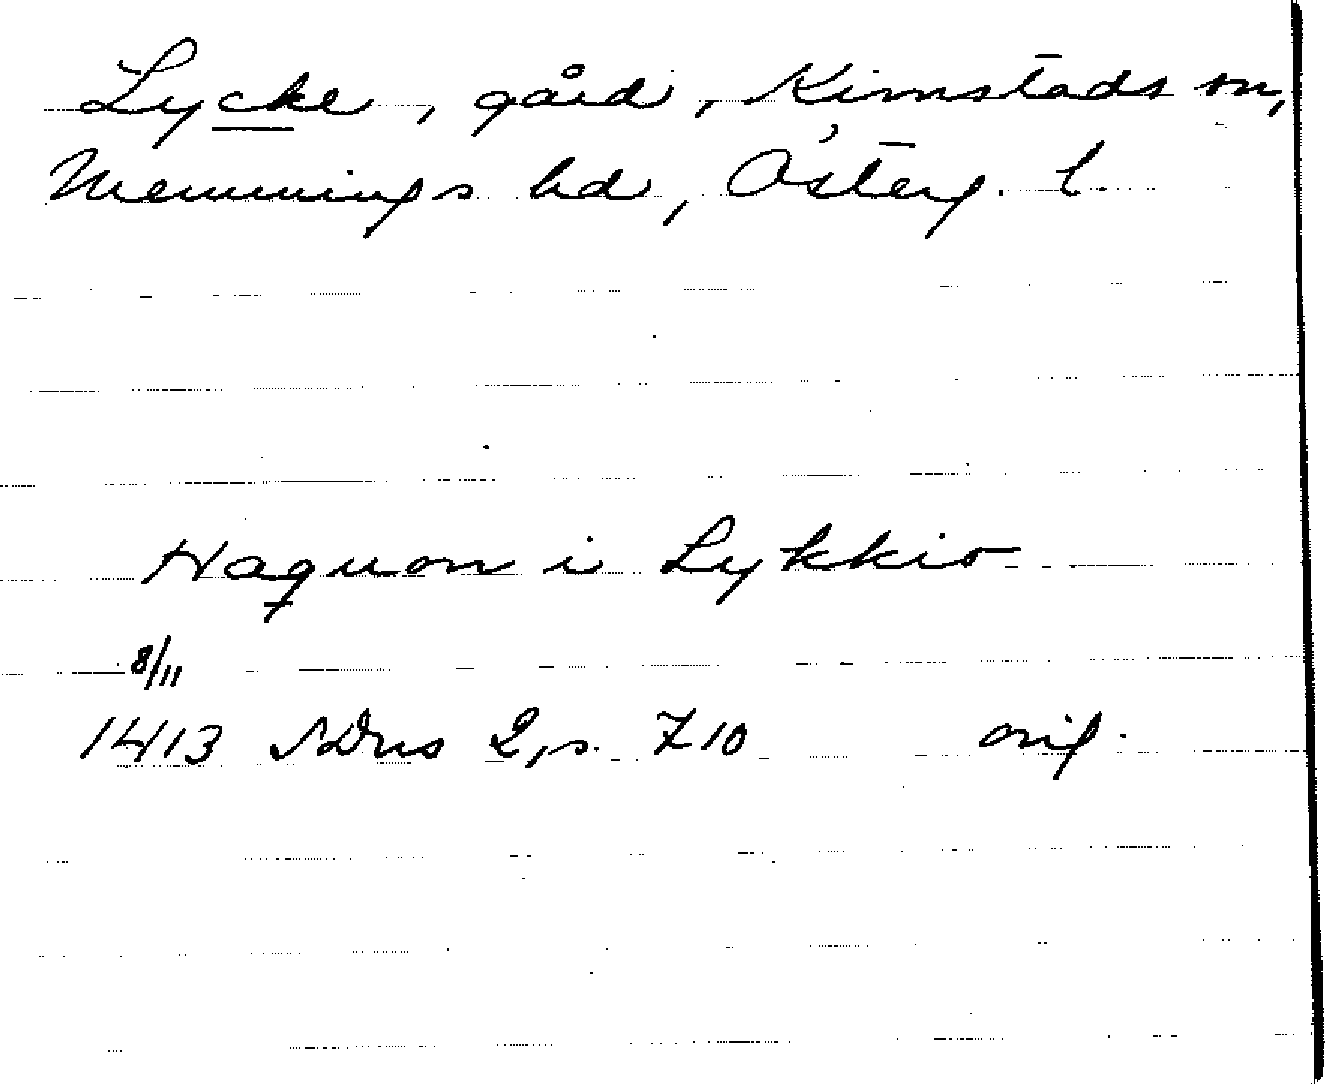 Lycke, gård, Kimstads sn,
Memmings hd, Österg. l
Haquon i Lykkio
8/11
1413 SDns 2, s. 710 orig.